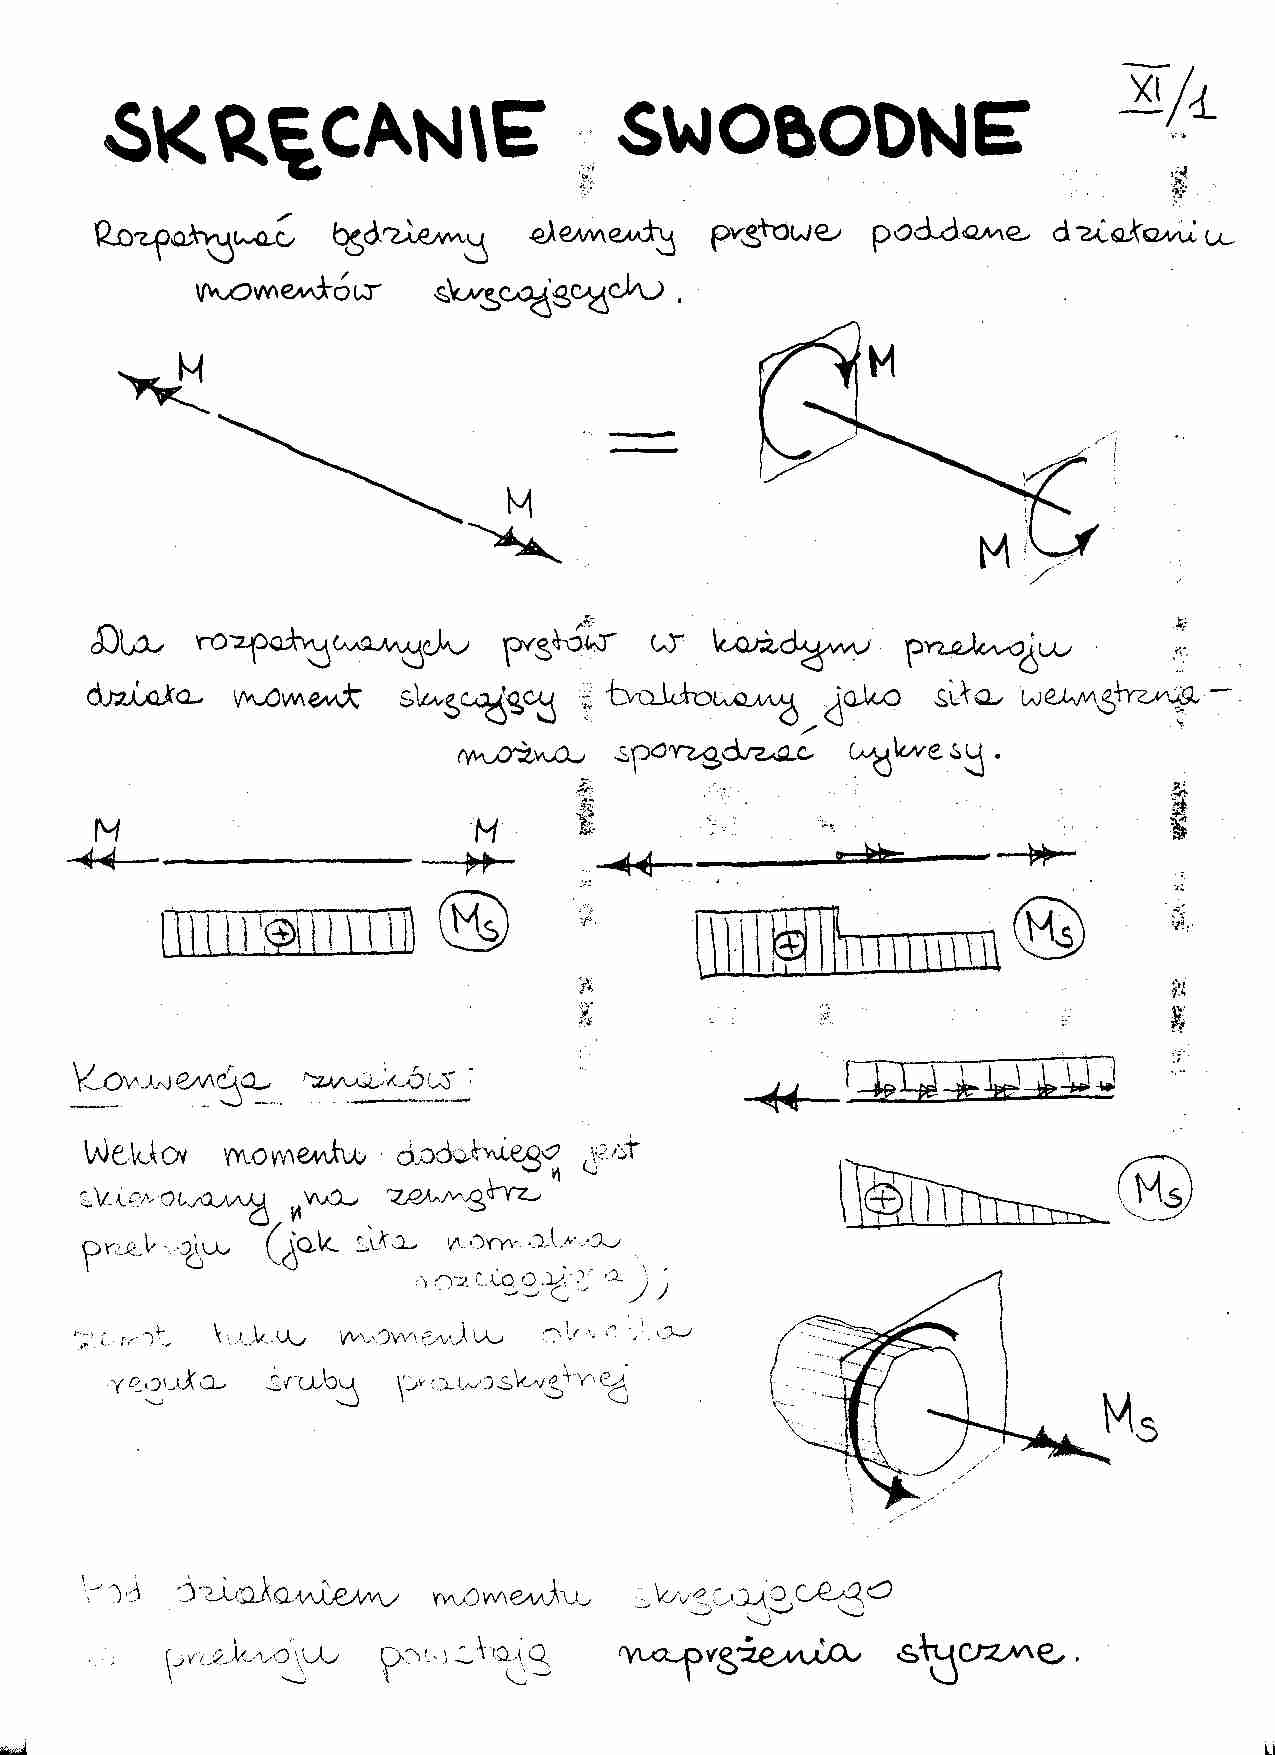 XI/1
SKRĘCANIE SWOBODNE
Rozpatrywać będziemy elementy prętowe poddane działaniu
momentów skręcających.
M
M
=
M
M
Dla rozpatrywanych prętów w każdym przekroju
działa moment skręcający traktowany jako siła wewnętrzna –
można sporządzać wykresy.
M M
+ Ms
+ Ms
Konwencja znaków:
Wektor momentu dodatniego jest
skierowany „na zewnątrz"
przekroju (jak siła normalna
rozciągająca);
zwrot łuku momentu określa
reguła śruby prawoskrętnej
+ Ms
Ms
Pod działaniem momentu skręcającego
w przekroju powstają naprężenia styczne.